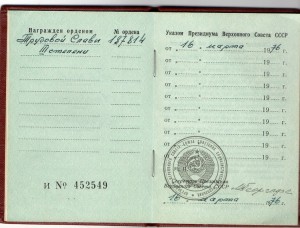 Награжден орденом № ордена
Трудовой Славы 187814
III степени
И № 452549
Указом Президиума Верховного Совета СССР
от „16" марта 1976
от „ " 19
от „ " 19
от „ " 19
от „ " 19
от „ " 19
от „ " 19
от „ " 19
от „ " 19
от „ " 19
Секретарь Президиума
Верховного Совета СССР
„16" марта 1976